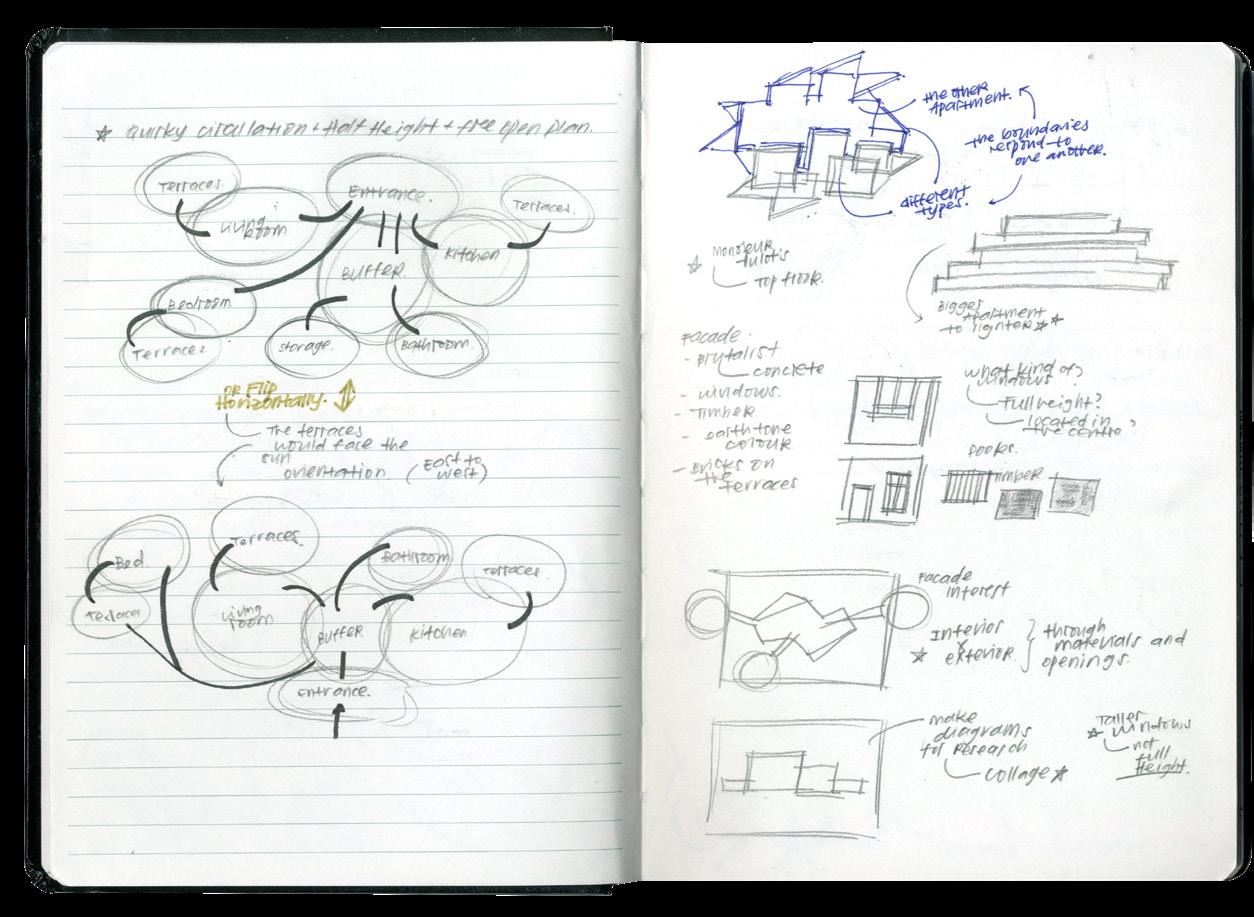 ☆ Quirky circulation + Half Height + free open plan.
Terraces.
Entrance.
Terraces.
Living
Room
Kitchen
Buffer.
Bedroom
Terraces.
Storage.
Bathroom.
or Flip
Horizontally.
The terraces
would face the
sun
orientation. (East to
west)
Terraces.
Bathroom
Bed
Terraces.
Terraces
Living
room
Buffer
Kitchen
Entrance.
the other
Apartment.
the boundaries
respond to
one another.
different
types.
☆
Top floor.
Bigger
Apartment
to lighter ☆ ☆
Facade:
- Brutalist
concrete
- windows.
- Timber.
- earth tone
colour
- Bricks on
the
Terraces
what kind of
windows?
Full height?
located in
the centre?
Timber
Facade
interest
☆ Interior
exterior. } through
materials and
openings.
make
diagrams
for research
collage ☆
Taller
☆ windows
not
full
Height.